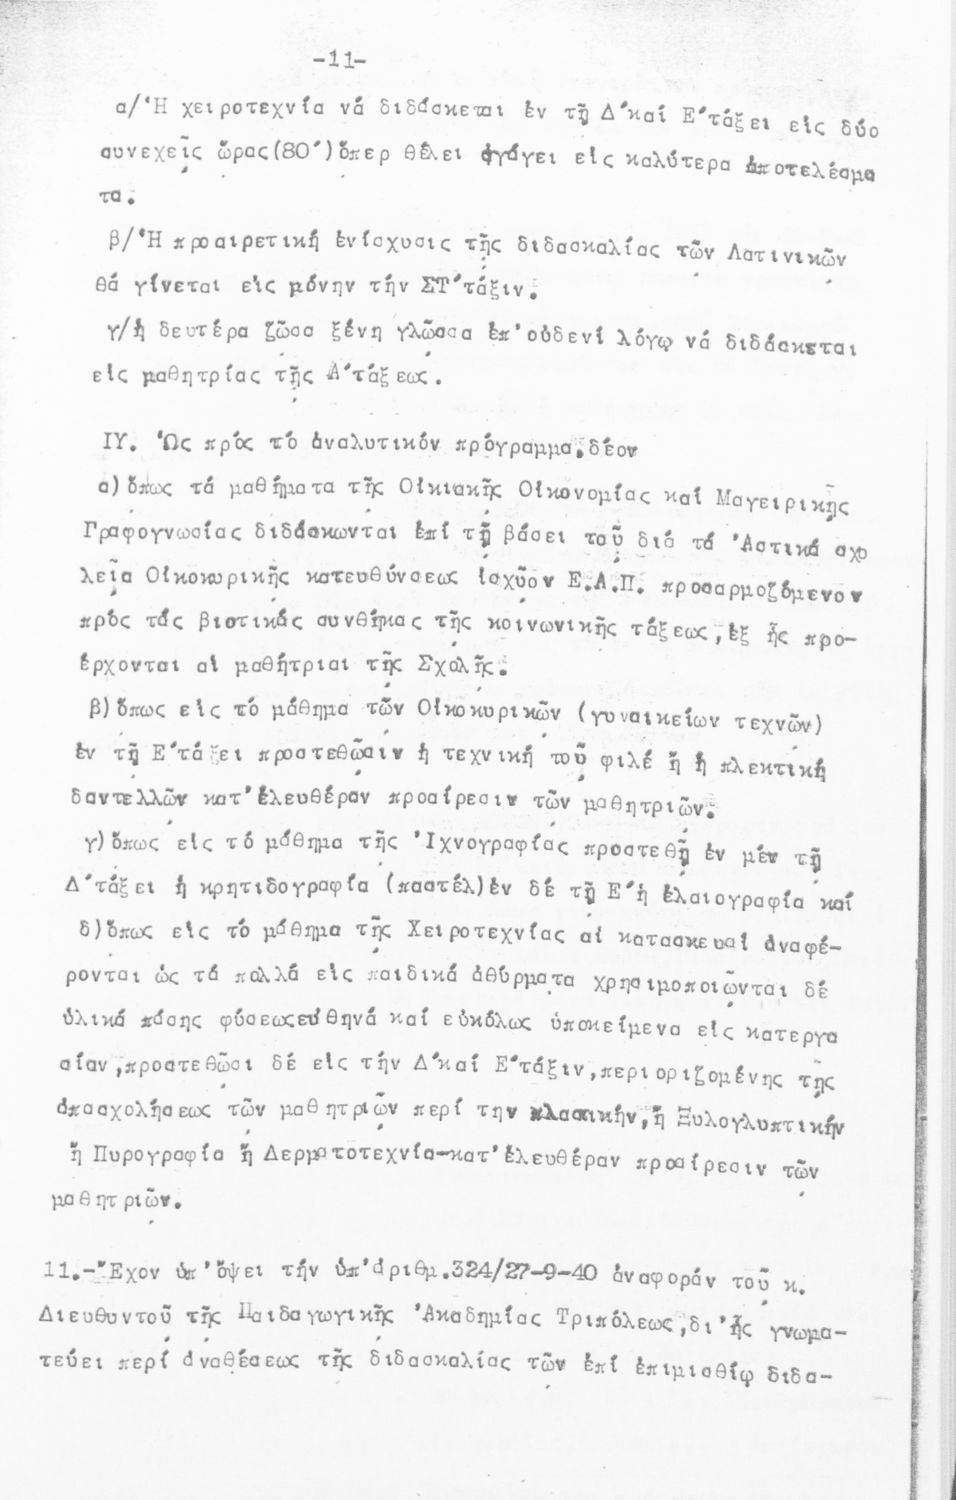 -11-
α/Ἡ χειροτεχνία νά διδάσκεται ἐν τῇ Δ΄καί Ε΄τάξει εἰς δύο
συνεχεῖς ὥρας(80΄)ὅπερ θέλει ἀγάγει εἰς καλύτερα ἀποτελέσμα
τα.
β/Ἡ προαιρετική ἐνίσχυσις τῆς διδασκαλίας τῶν Λατινικῶν
θά γίνεται εἰς μόνην τήν ΣΤ΄τάξιν.
γ/ἡ δευτέρα ζῶσα ξένη γλῶσσα ἐπ'οὐδενί λόγῳ νά διδάσκεται
εἰς μαθητρίας τῆς Α΄τάξεως.
ΙΥ. Ὡς πρός τό ἀναλυτικόν πρόγραμμα,δέον
α)ὅπως τά μαθήματα τῆς Οἰκιακῆς Οἰκονομίας καί Μαγειρικῆς
Γραφογνωσίας διδάσκωνται ἐπί τῇ βάσει τοῦ διά τά Ἀστικά σχο
λεῖα Οἰκοκυρικῆς κατευθύνσεως ἰσχῦον Ε.Α.Π. προσαρμοζόμενον
πρός τάς βιοτικάς συνθήκας τῆς κοινωνικῆς τάξεως,ἐξ ἧς προ-
έρχονται αἱ μαθήτριαι τῆς Σχολῆς.
β)ὅπως εἰς τό μάθημα τῶν Οἰκοκυρικῶν (γυναικείων τεχνῶν)
ἐν τῇ Ε΄τάξει προστεθῶσιν ἡ τεχνική τοῦ φιλέ ἤ ἡ πλεκτική
δαντελλῶν κατ'ἐλευθέραν προαίρεσιν τῶν μαθητριῶν.
γ)ὅπως εἰς τό μάθημα τῆς Ἰχνογραφίας προστεθῇ ἐν μέν τῇ
Δ΄τάξει ἡ κρητιδογραφία (παστέλ)ἐν δέ τῇ Ε΄ἡ ἐλαιογραφία καί
δ)ὅπως εἰς τό μάθημα τῆς Χειροτεχνίας αἱ κατασκευαί ἀναφέ-
ρονται ὡς τά πολλά εἰς παιδικά ἀθύρματα χρησιμοποιῶνται δέ
ὑλικά πάσης φύσεωςεὐθηνά καί εὐκόλως ὑποκείμενα εἰς κατεργα
σίαν,προστεθῶσι δέ εἰς τήν Δ΄καί Ε΄τάξιν,περιοριζομένης τῆς
ἀπασχολήσεως τῶν μαθητριῶν περί την πλαστικήν,ἤ Ξυλογλυπτικήν
ἤ Πυρογραφία ἤ Δερματοτεχνία-κατ'ἐλευθέραν προαίρεσιν τῶν
μαθητριῶν.
11.-Ἔχον ὑπ'ὄψει τήν ὑπ'ἀριθμ.324/27-9-40 ἀναφοράν τοῦ κ.
Διευθυντοῦ τῆς Παιδαγωγικῆς Ἀκαδημίας Τριπόλεως,δι'ἧς γνωμα-
τεύει περί ἀναθέσεως τῆς διδασκαλίας τῶν ἐπί ἐπιμισθίῳ διδα-